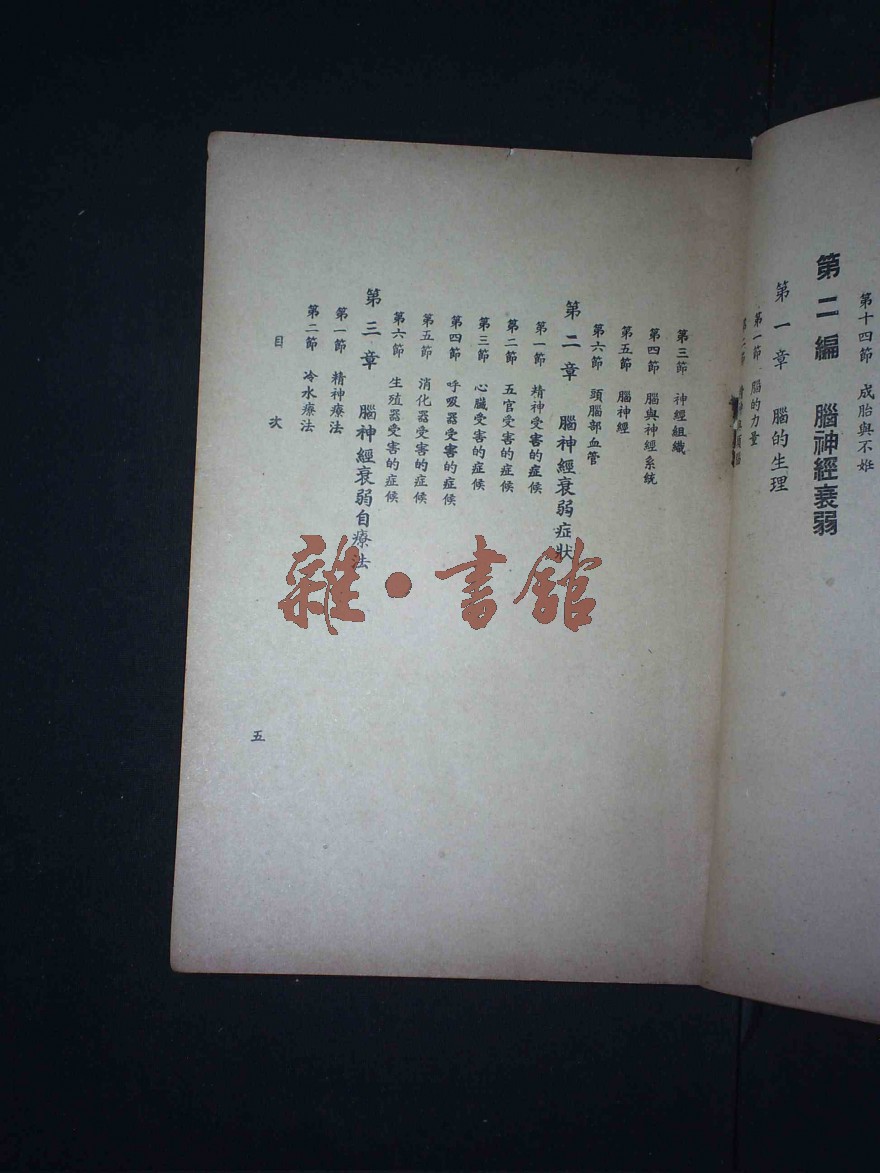 第十四節 成胎與不姙
第二編 腦神經衰弱
第一章 腦的生理
第一節 腦的力量
第二節
第三節 神經組織
第四節 腦與神經系統
第五節 腦神經
第六節 頭腦部血管
第二章 腦神經衰弱症狀
第一節 精神受害的症候
第二節 五官受害的症候
第三節 心臟受害的症候
第四節 呼吸器受害的症候
第五節 消化器受害的症候
第六節 生殖器受害的症候
第三章 腦神經衰弱自療法
第一節 精神療法
第二節 冷水療法
目次
五
雜·書館